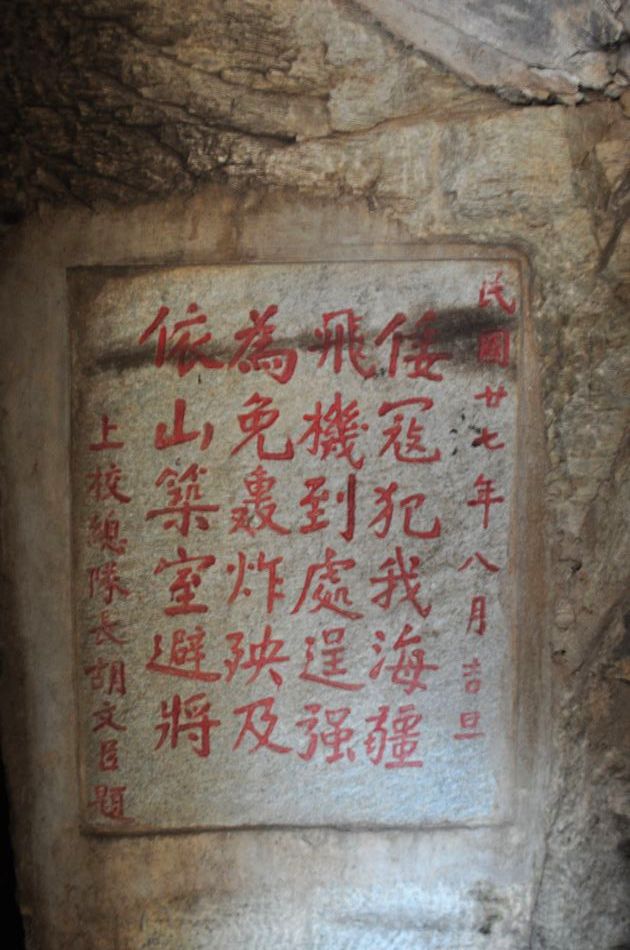 民國廿七年八月吉旦
倭冦犯我海疆
飛機到處逞强
為免轟炸殃及
依山築室避將
上校總隊長胡文臣題